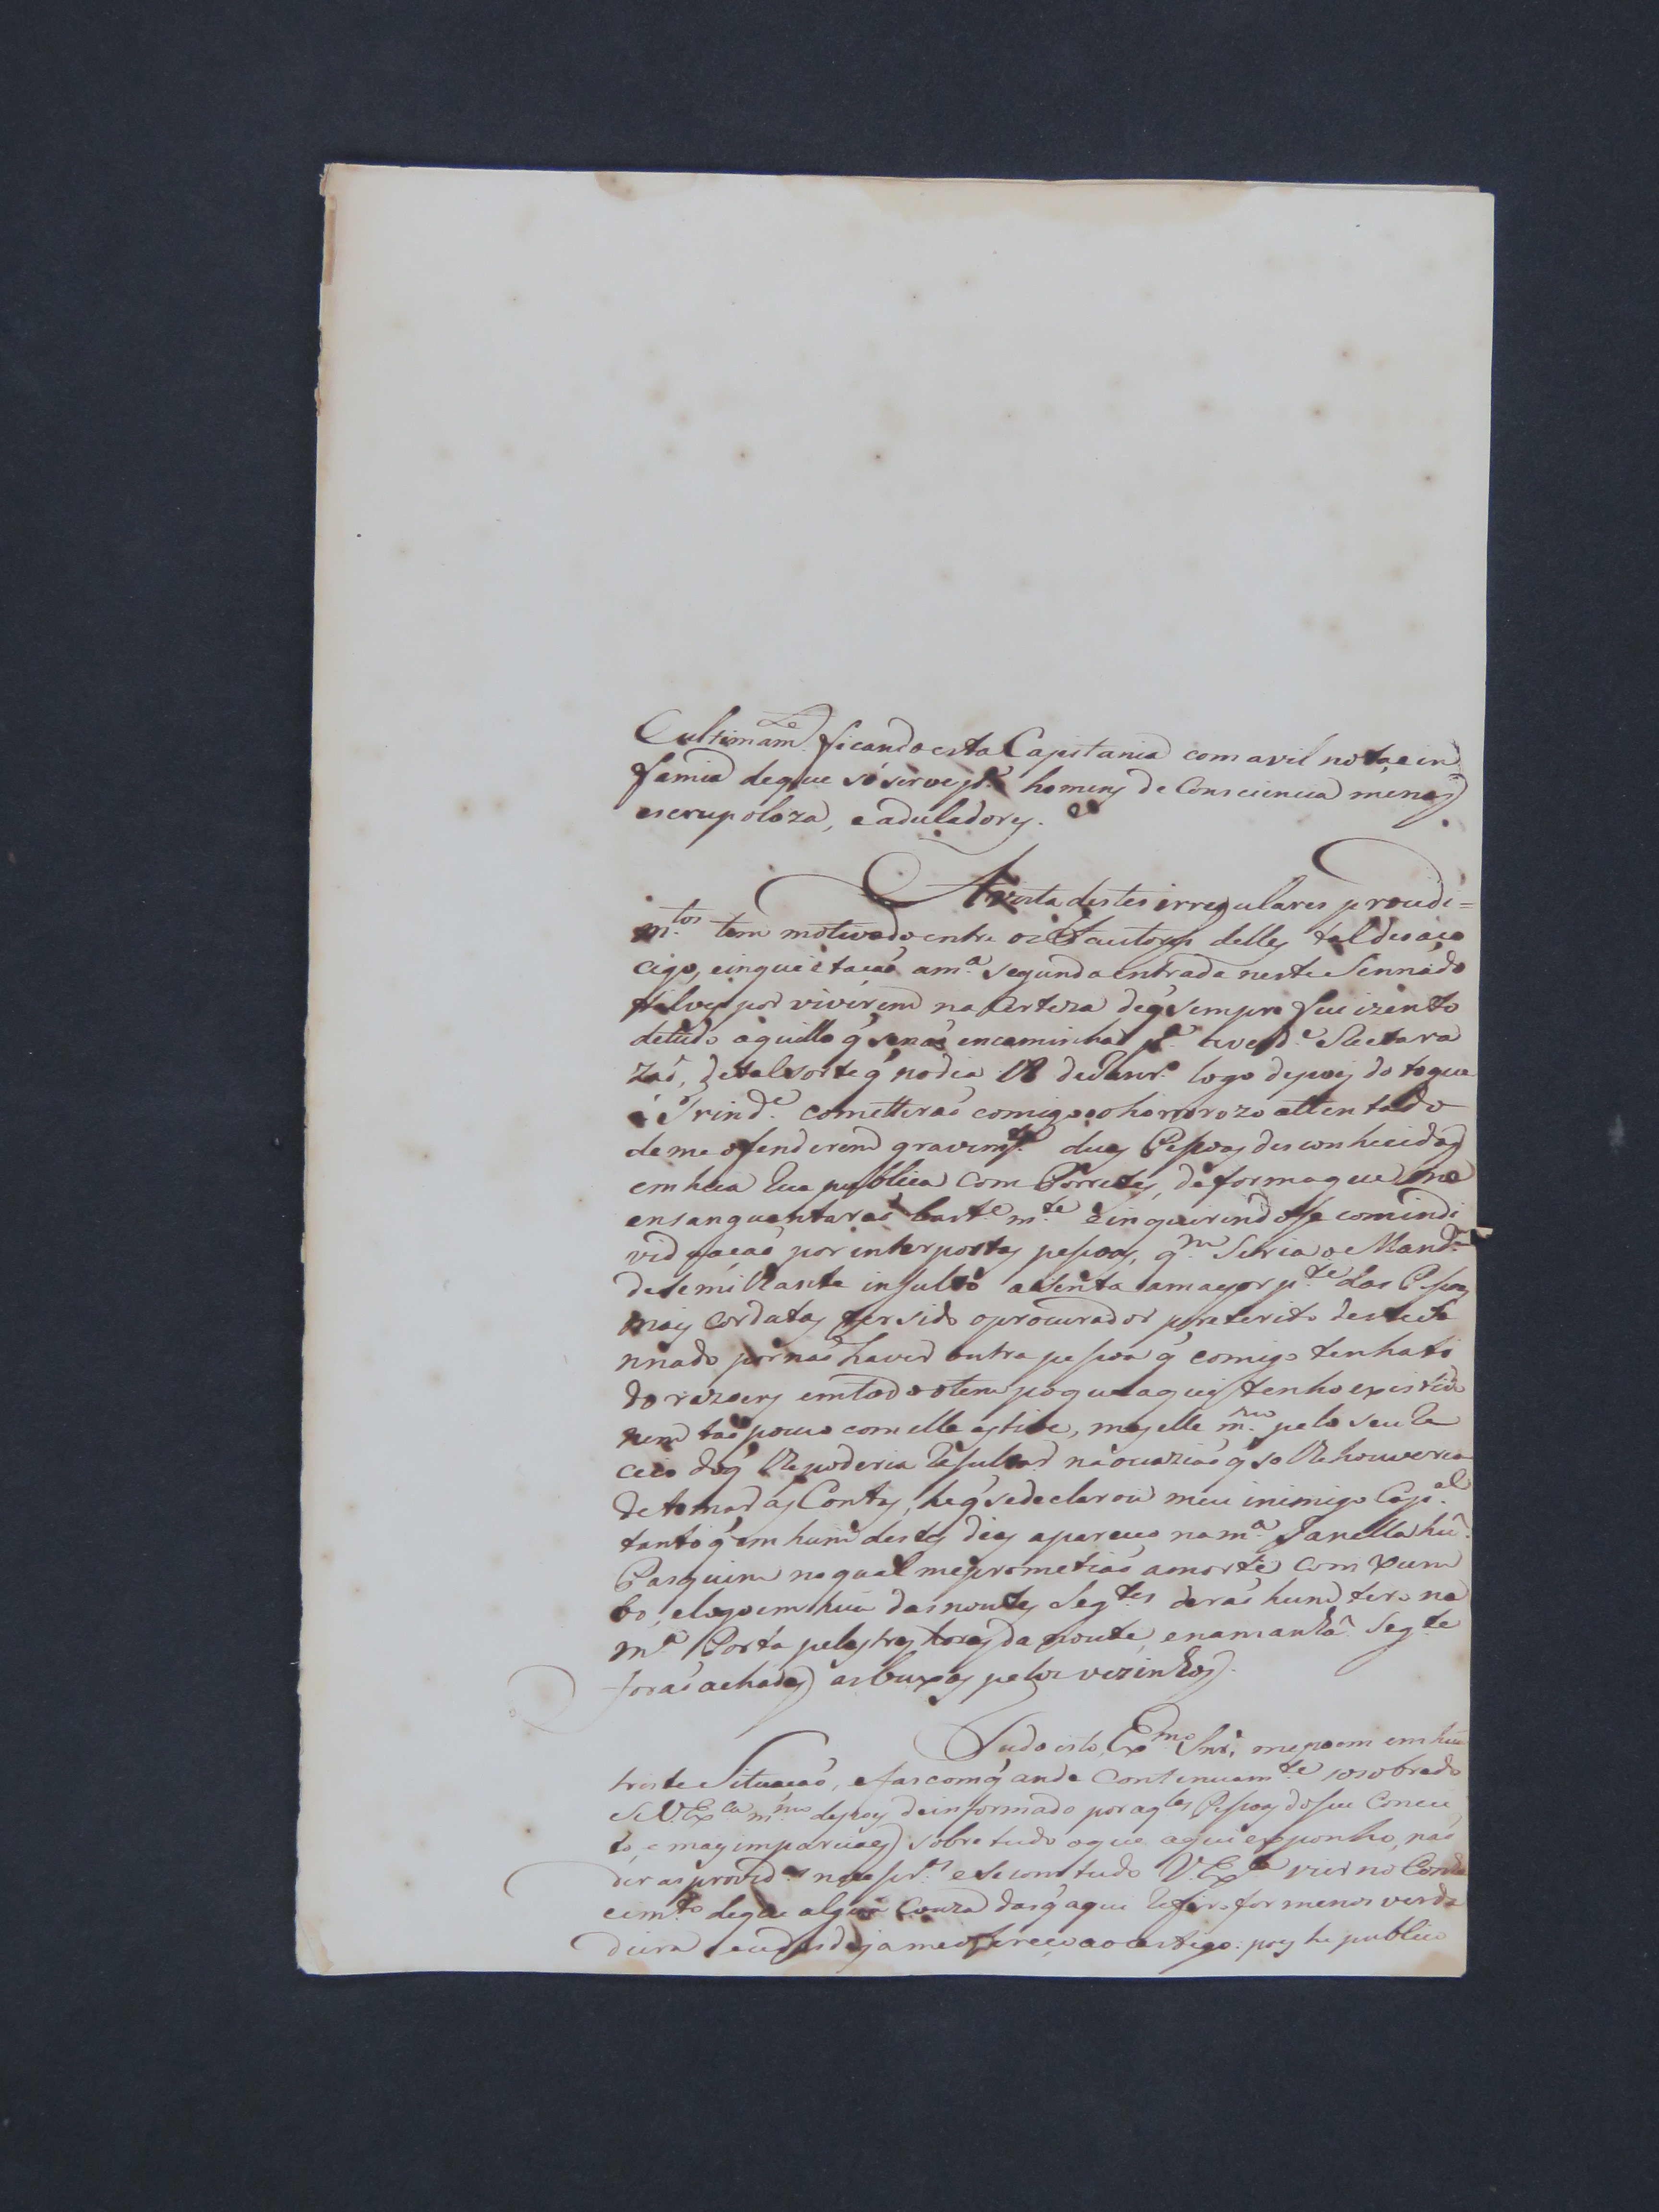 E ultimam.te ficando esta Capitania com a vil nota, e in
famia de que só serve p.a homens de Consciencia menos
escrupoloza, e aduladores.
A vista destes irregulares proudi=
m.tos tem motivado entre os Fautores delles tal desaso
cego, e inquietaçaõ a m.a segunda entrada neste Sennado
talves por viverem na Certeza de q̃ sempre fui izento
de tudo aquillo q̃ senaõ encaminha p.a averd.e e
zaõ, de tal sorte q̃ no dia 18 de Janr.o logo depois do toque
á Trind.e cometteraõ comigo o horrorozo attentado
de me ofenderem gravem.te duas Pessoas desconhecidas
em hũa Rua publica com Porretes, de forma que me
ensanguentaraõ bast.e m.te e inquirindosse com indi
viduaçaõ por interpostas pessoas, q.m Seria o Mand.e
de semilhante insulto asenta a mayor p.te das Pessoas
mais Cordatas ter sido o procurador preterito deste Se
nnado por naõ haver outra pessoa q̃ comigo tenha ti
do razoens em todo o tempo que aqui tenho existido
nem taõ pouco com elle as tive, mas elle m.mo pelo seu Re
ceio do q̃ lhe poderia Resultar na ocaziaõ q̃ se lhe houverem
de tomar as Contas, he q̃ se declarou meu inimigo Cap.al
tanto q̃ em hum destes dias apareceo na m.a Janella hũ
Pasquim no qual me prometiaõ a morte com Xum
bo, e logo em hũa das noutes Seg.tes deraõ hum tiro na
m.a Porta pelas tres horas da noute, e na manhã Seg.te
foraõ achadas as buxas pelos vezinhos.
Tudo isto, Ex.mo Snr', me poem em hũa
triste Situaçaõ, e fas com q̃ ande Continuam.te sosobrado
Se V. Ex.ca m.mo depois de informado por aq.las Pessoas do seu Concei
to, e mais imparciaes sobre tudo o que aqui exponho, naõ
der as provid.as necessr.as e se com tudo V. Ex.ca vier no Conhe
cim.to de que algũa Couza das q̃ aqui Refiro for menos verda
deira eu desde ja me ofereço ao castigo. pois he publico